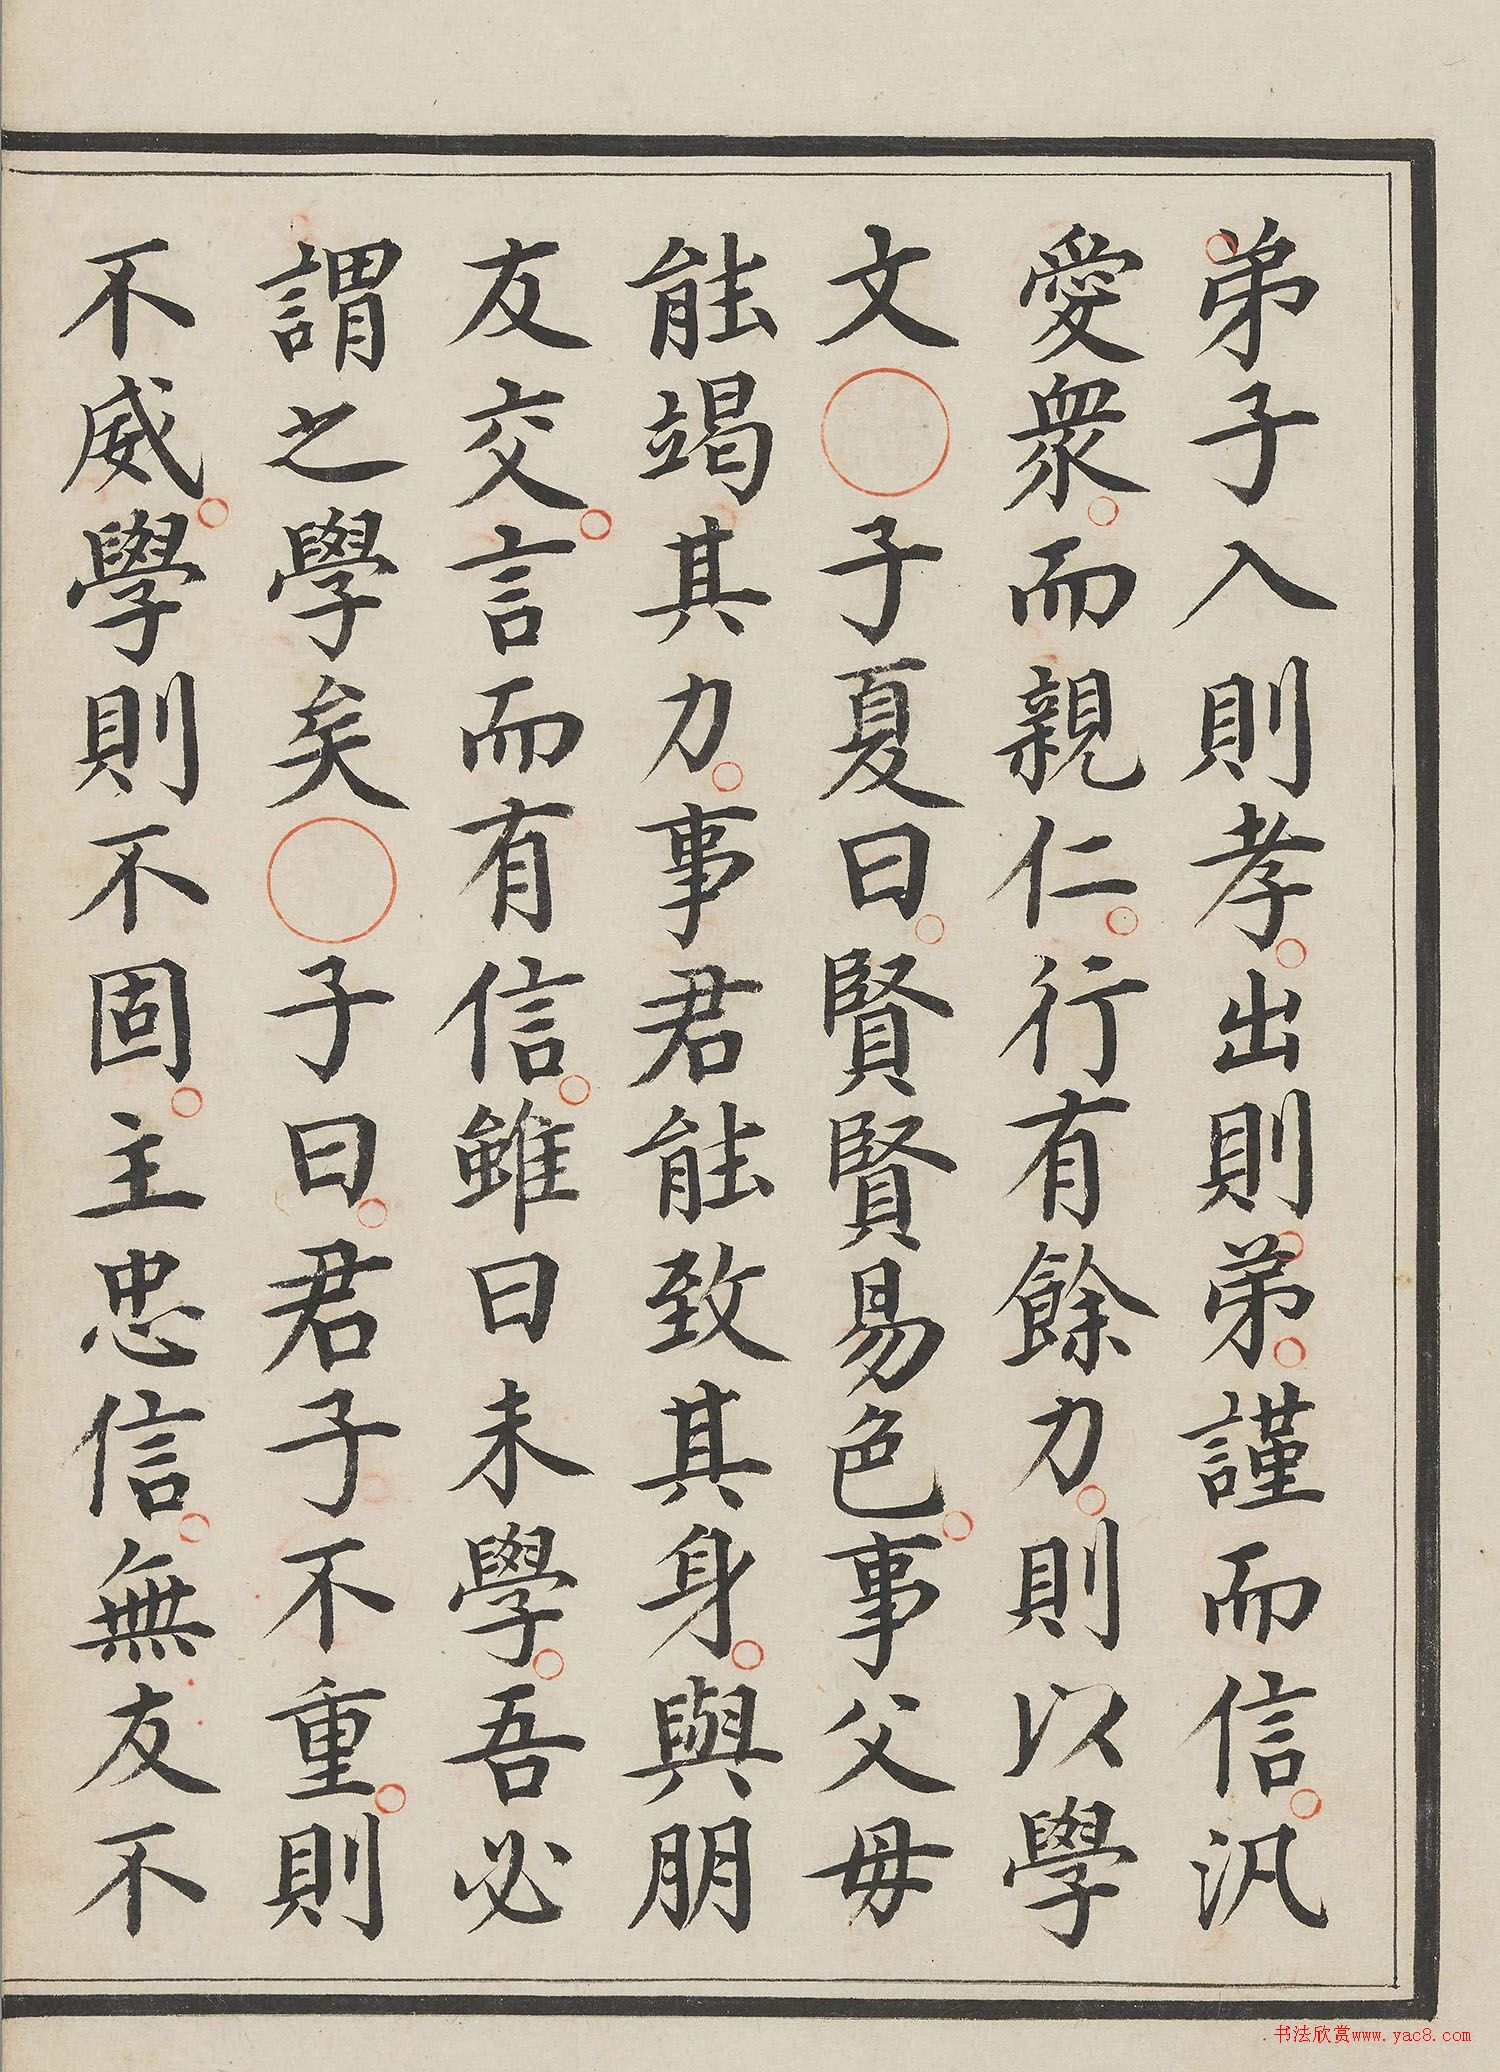 弟子入則孝。出則弟。謹而信。汎
愛衆。而親仁。行有餘力。則以學
文○子夏曰。賢賢易色。事父母
能竭其力。事君能致其身。與朋
友交。言而有信。雖曰未學。吾必
謂之學矣○子曰。君子不重。則
不威。學則不固。主忠信。無友不
书法欣赏www.yac8.com